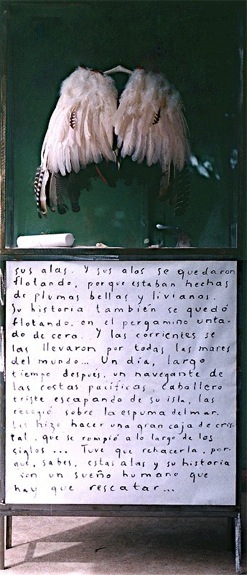 sus alas. Y sus alas se quedaron
flotando, porque estaban hechas
de plumas bellas y livianas.
Su historia también se quedó
flotando, en el pergamino unta-
do de cera. Y las corrientes se
las llevaron por todas las mares
del mundo... Un día, largo
tiempo después, un navegante de
las costas pacíficas, caballero
triste escapando de su isla, las
recogió sobre la espuma del mar.
Les hizo hacer una gran caja de cris-
tal, que se rompió a lo largo de los
siglos... Tuve que rehacerla, por-
que, sabes, estas alas y su historia
son un sueño humano que
hay que rescatar...